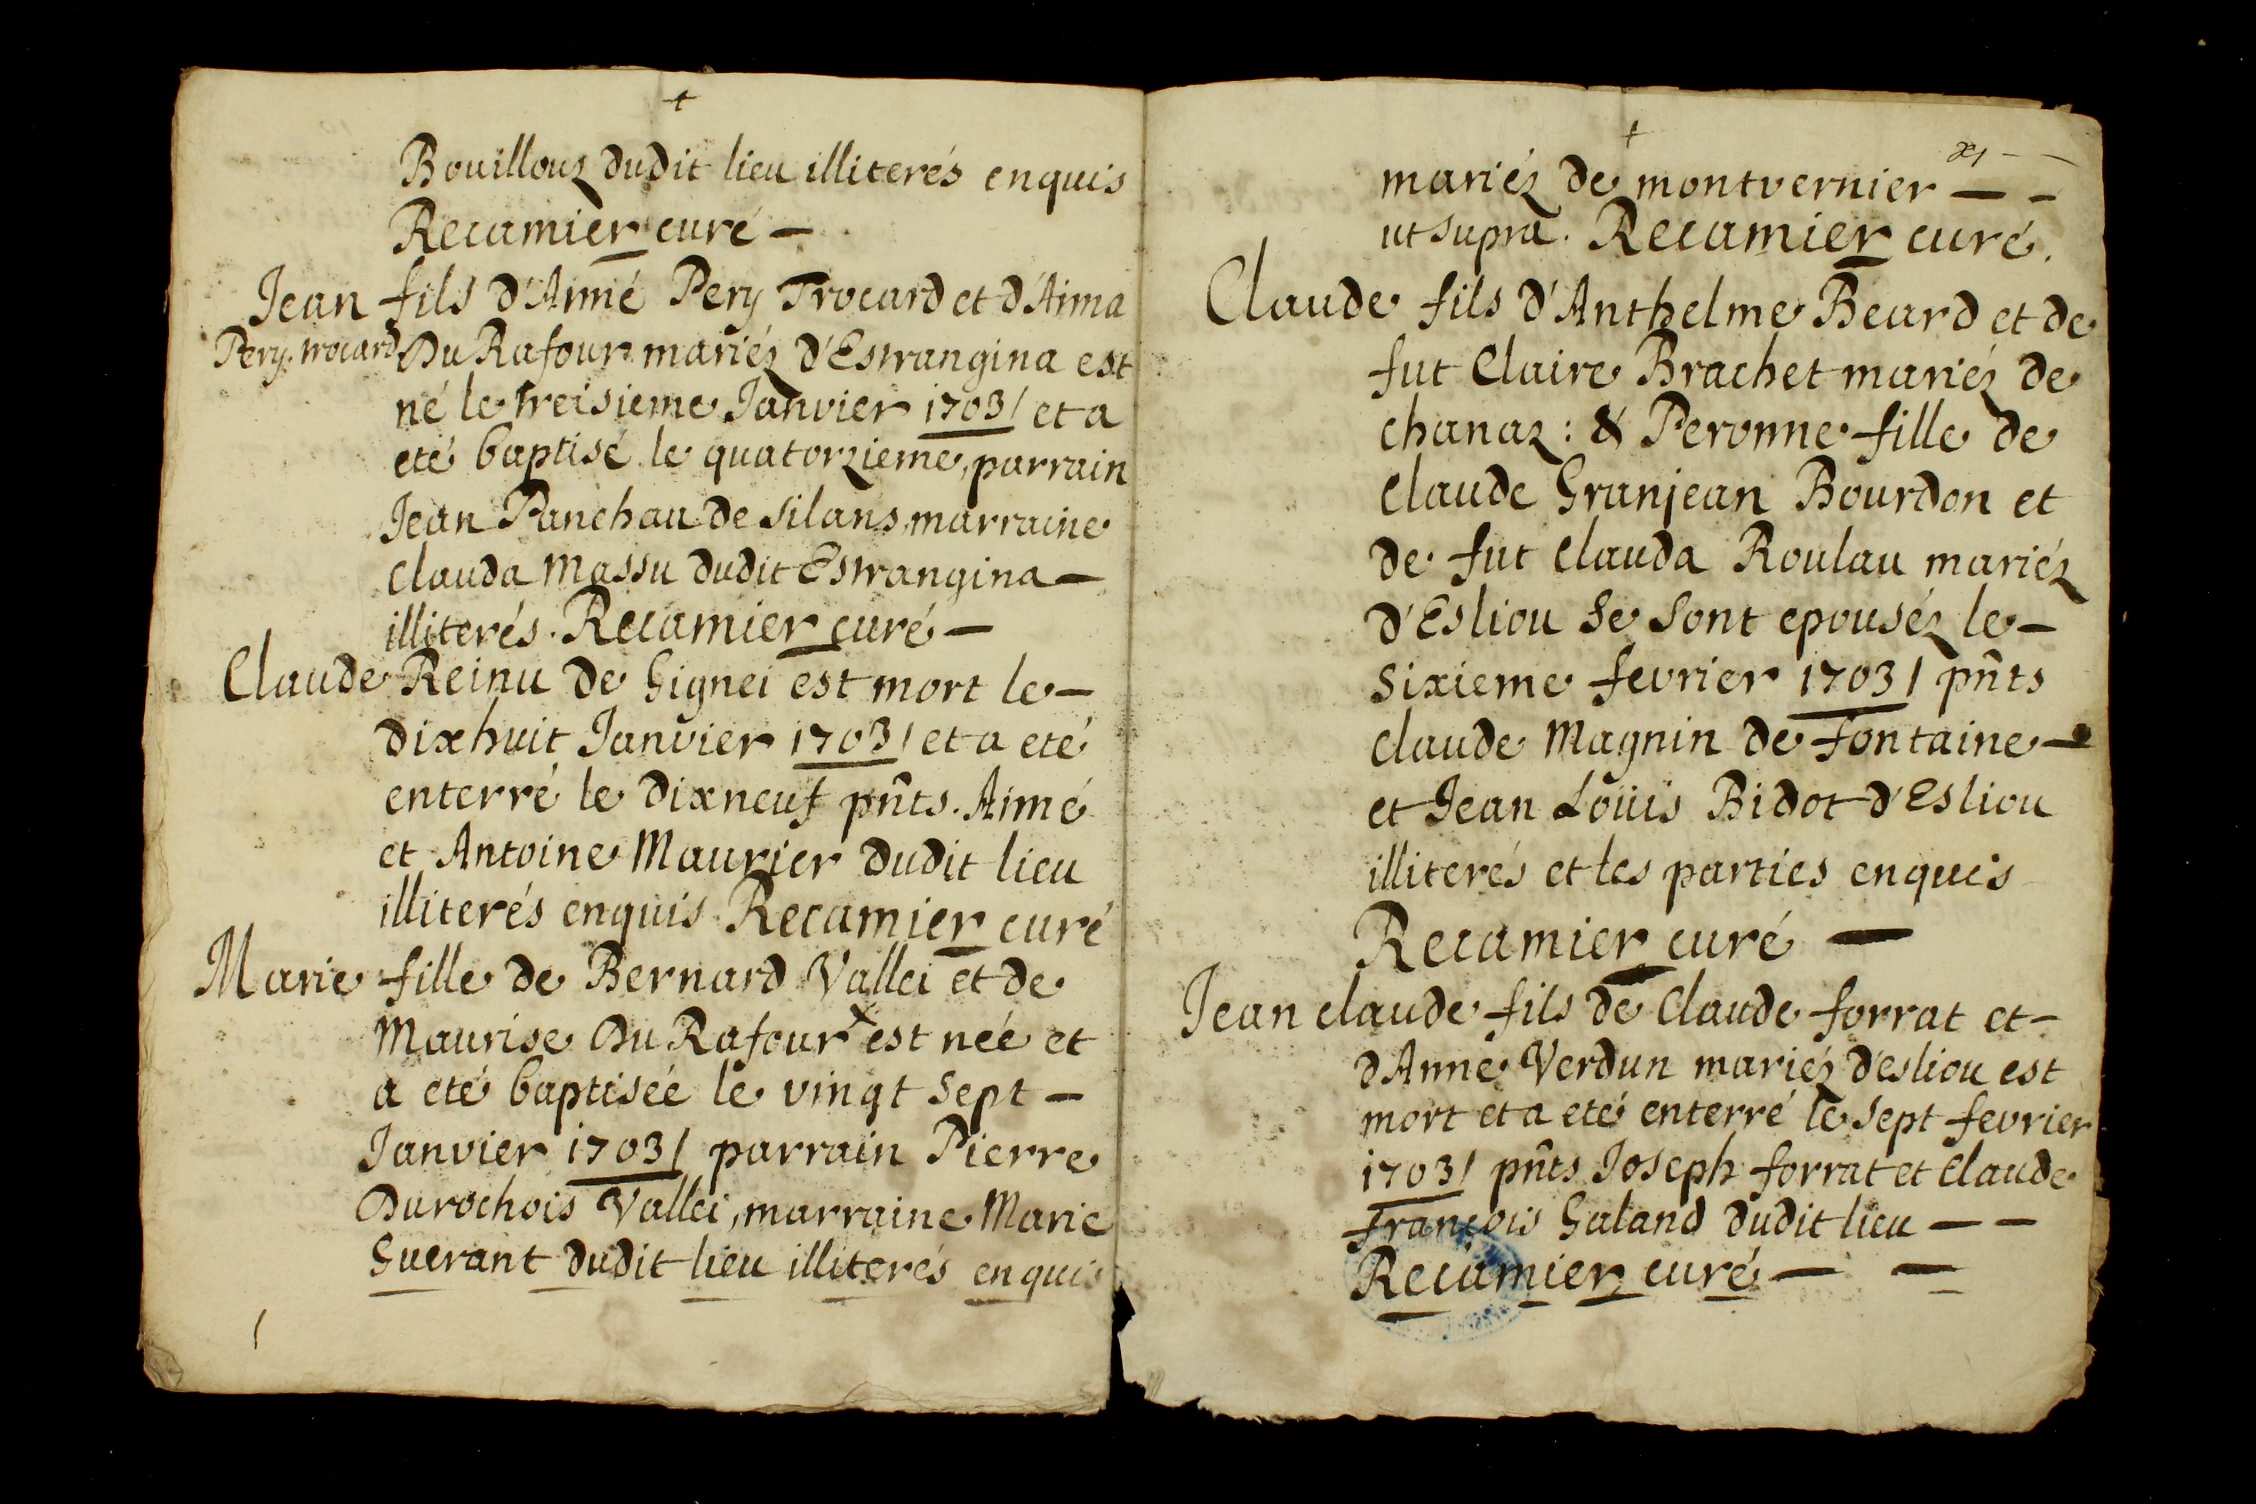 +
Bouillouz dudit lieu illiterés enquis
Recamier curé —
Jean fils d'Aimé Pery Trocard et d'Aima
Pery trocard Du Rafour mariéz d'Estrangina est
né le treisieme Janvier 1703/ et a
eté baptisé le quatorzieme, parrain
Jean Panchau de silans marraine
clauda Massu dudit Estrangina —
illiterés. Recamier curé —
Claude Reinu de Gignei est mort le —
dixhuit Janvier 1703/ et a eté
enterré le dixneuf pñts. Aimé
et Antoine Maurier dudit lieu
illiterés enquis Recamier curé
Marie fille de Bernard Vallei et de
Maurise Du Rafour x est née et
a eté baptisée le vingt sept —
Janvier 1703/ parrain Pierre
Durochois Vallei, marraine Marie
Guerant dudit lieu illiterés enquis
+
mariéz de montvernier — -
ut supra. Recamier curé.
Claude fils d'Anthelme Beard et de
fut Claire Brachet mariéz de
chanaz: & Peronne fille de
Claude Granjean Bourdon et
de fut Clauda Roulau mariéz
d'Esliou se sont epouséz le —
sixieme fevrier 1703/ pñts
claude Magnin de Fontaine —
et Jean Loüis Bidot d'Esliou
illiterés et les parties enquis
Recamier curé —
Jean claude fils de Claude forrat et —
d'Anne Verdun mariéz d'esliou est
mort et a eté enterré le sept fevrier
1703/ pñts Joseph forrat et Claude
François Galand dudit lieu — —
Recamier curé — —